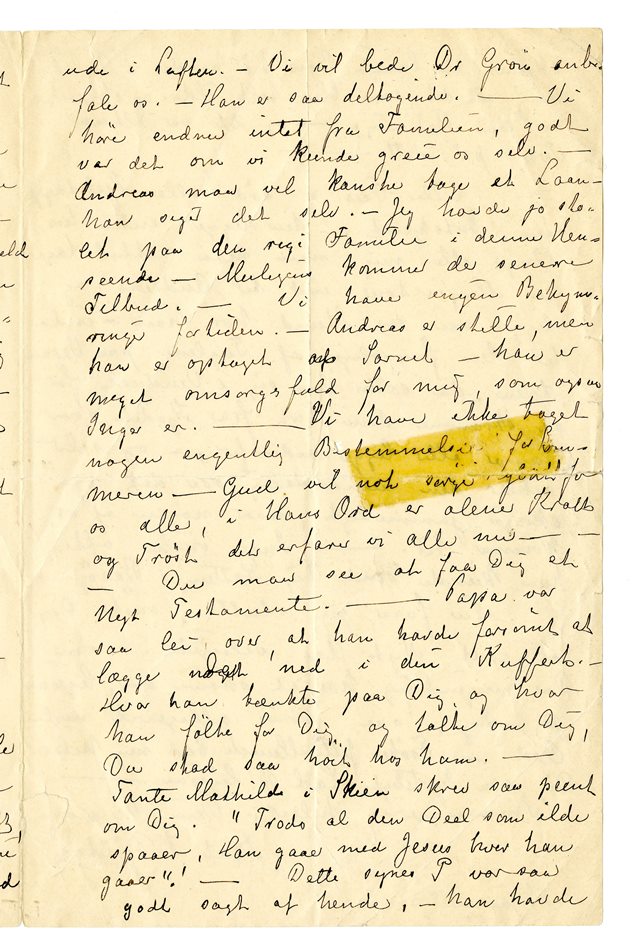 ude i Luften. – Vi vil bede Dr Grön anbe-
fale os. – Han er saa deltagende. — Vi
höre endnu intet fra Familien, godt
var det om vi kunde greie os selv. –
Andreas maa vel kanske tage et Laan –
han siger det selv. – Jeg havde jo sto-
let paa den rige Familie i denne Hen-
seende – Muligens kommer de senere
Tilbud. – Vi have ingen Bekym-
ringer for tiden. – Andreas er stille, men
han er optaget af Savnet – han er
meget omsorgsfuld for mig, som ogsaa
Inger er. — Vi have ikke taget
nogen egentlig Bestemmelse for Som-
meren – Gud vil nok sørge godt for
os alle, i Hans Ord er alene Kraft
og Tröst det erfarer vi alle nu – –
– Du maa see at faa Dig et
Nyt Testamente. — Papa var
saa lei over, at han havde forsömt at
lægge det ned i din Kuffert. –
Hvor han tænkte paa Dig og hvor
han fölte for Dig, og talte om Dig,
Du stod saa höit hos ham. –
Tante Mathilde i Skien skrev saa pænt
om Dig. "Trods al den Deel som ilde
spaaer, Han gaaer med Jesus hvor han
gaaer"! – Dette synes P var saa
godt sagt af hende, – han havde